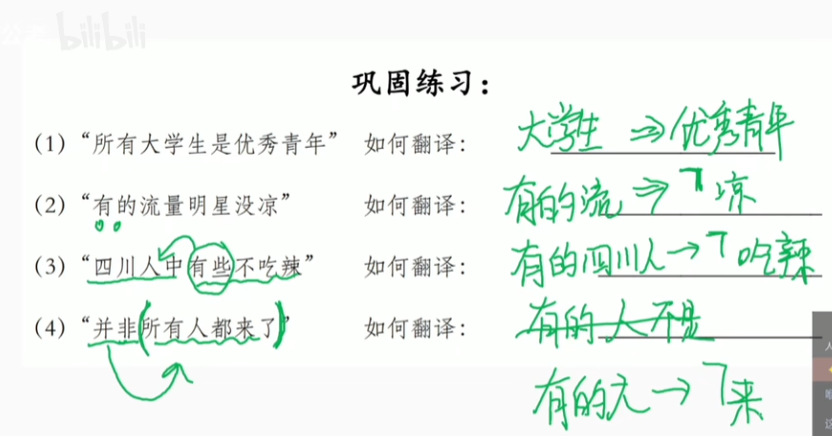 bilibili
巩固练习：
(1)“所有大学生是优秀青年” 如何翻译： 大学生 ⇒ 优秀青年
(2)“有的流量明星没凉” 如何翻译： 有的流 ⇒ ㄱ凉
(3)“四川人中有些不吃辣” 如何翻译： 有的四川人 → ㄱ吃辣
(4)“并非所有人都来了” 如何翻译： 有的人不是
有的人 → ㄱ来